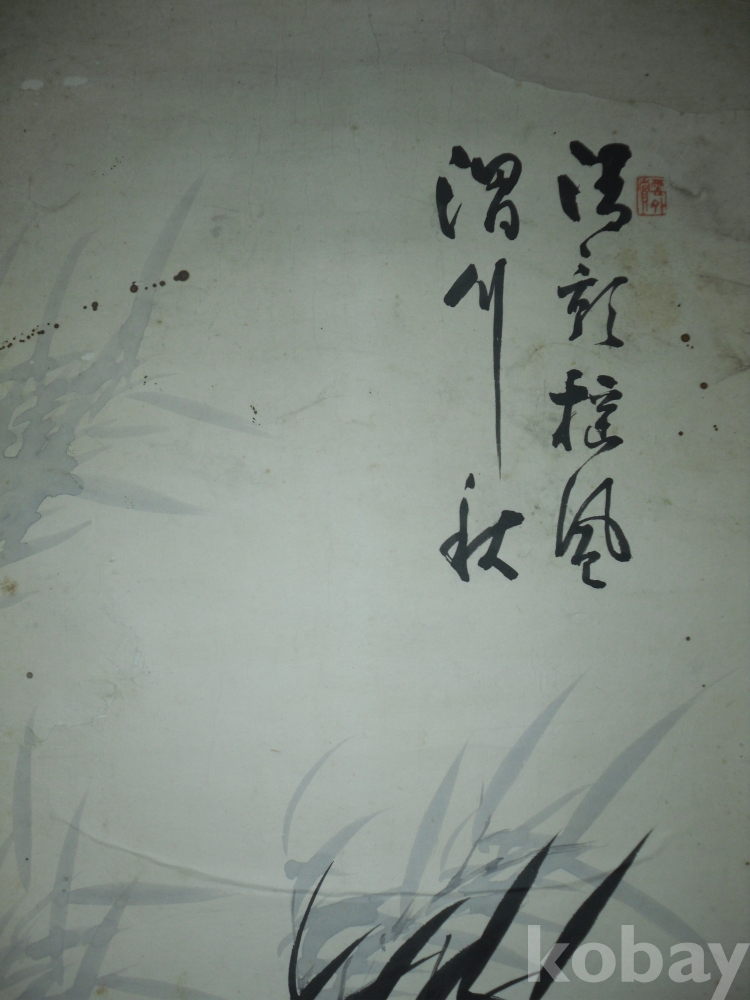 清影摇風
渭川秋
kobay